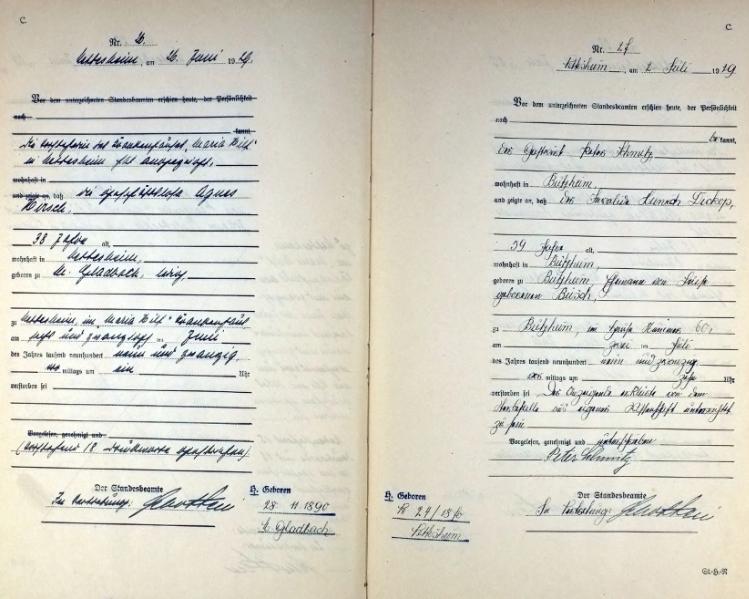 C.
Nr. 26.
Nettesheim, am 26. Juni 1929.
Vor dem unterzeichneten Standesbeamten erschien heute, der Persönlichkeit
nach
kannt,
Die Vorsteherin des Krankenhauses "Maria Hilf"
in Nettesheim hat angezeigt,
wohnhaft in
und zeigte an, daß die geschäftslose Agnes
Hirsch,
38 Jahre alt,
wohnhaft in Nettesheim,
geboren zu M. Gladbach, ledig,
zu Nettesheim, im "Maria Hilf" Krankenhaus
am sechs und zwanzigsten Juni
des Jahres tausend neunhundert neun und zwanzig,
mittags um ein Uhr
verstorben sei
Vorgelesen, genehmigt und
(Vorstehend 18 Druckworte gestrichen)
Der Standesbeamte
In Vertretung:
H. Geboren
28 11 1890
Gladbach
C.
Nr. 27
Nettesheim, am 2. Juli 1929
Vor dem unterzeichneten Standesbeamten erschien heute, der Persönlichkeit
nach
be kannt,
der Gastwirt Peter Schmitz
wohnhaft in Bützheim,
und zeigte an, daß der Invalide Heinrich
39 Jahre alt,
wohnhaft in Bützheim,
geboren zu Bützheim, Ehemann von
geborenen Büsch,
zu Bützheim, im Hause Nummer 60,
am zwei ten Juli
des Jahres tausend neunhundert neun und zwanzig
vor mittags um zehn Uhr
verstorben sei. Der Anzeigende erklärte von dem
Sterbefalle aus eigener Wissenschaft unterrichtet
zu sein
Vorgelesen, genehmigt und unterschrieben
Peter Schmitz
Der Standesbeamte
In Vertretung:
H. Geboren
Nettesheim
St.-H.-R